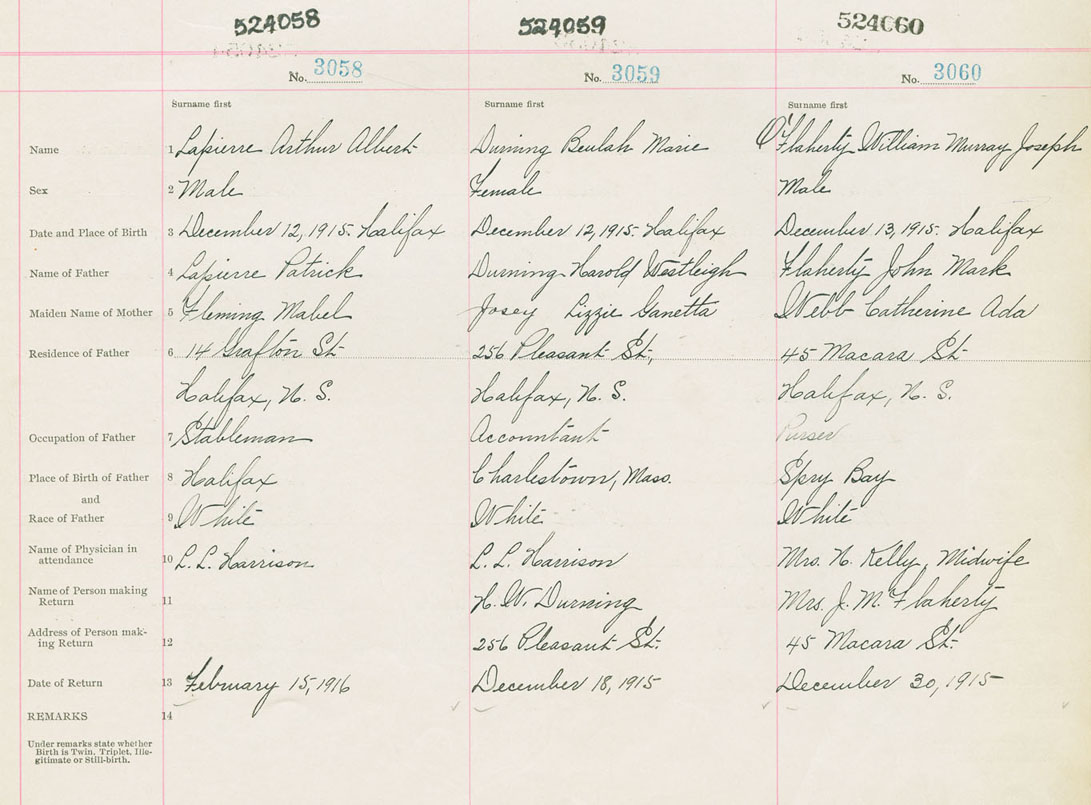 524058 524059 524060
No. 3058 No. 3059 No. 3060
Surname first Surname first Surname first
Name 1 Lapierre Arthur Albert Durning Beulah Marie O'Flaherty William Murray Joseph
Sex 2 Male Female Male
Date and Place of Birth 3 December 12, 1915. Halifax December 12, 1915. Halifax December 13, 1915. Halifax
Name of Father 4 Lapierre Patrick Durning Harold Westleigh Flaherty John Mark
Maiden Name of Mother 5 Fleming Mabel Josey Lizzie Ganetta Webb Catherine Ada
Residence of Father 6 14 Grafton St. 256 Pleasant St., 45 Macara St.
Halifax, N. S. Halifax, N. S. Halifax, N. S.
Occupation of Father 7 Stableman Accountant Purser
Place of Birth of Father 8 Halifax Charlestown, Mass. Spry Bay
and
Race of Father 9 White White White
Name of Physician in
attendance 10 L. L. Harrison L. L. Harrison Mrs. N. Kelly, Midwife
Name of Person making
Return 11 H. W. Durning Mrs. J. M. Flaherty
Address of Person mak-
ing Return 12 256 Pleasant St. 45 Macara St.
Date of Return 13 February 15, 1916 December 18, 1915 December 30, 1915
REMARKS 14
Under remarks state whether
Birth is Twin, Triplet, Ille-
gitimate or Still-birth.